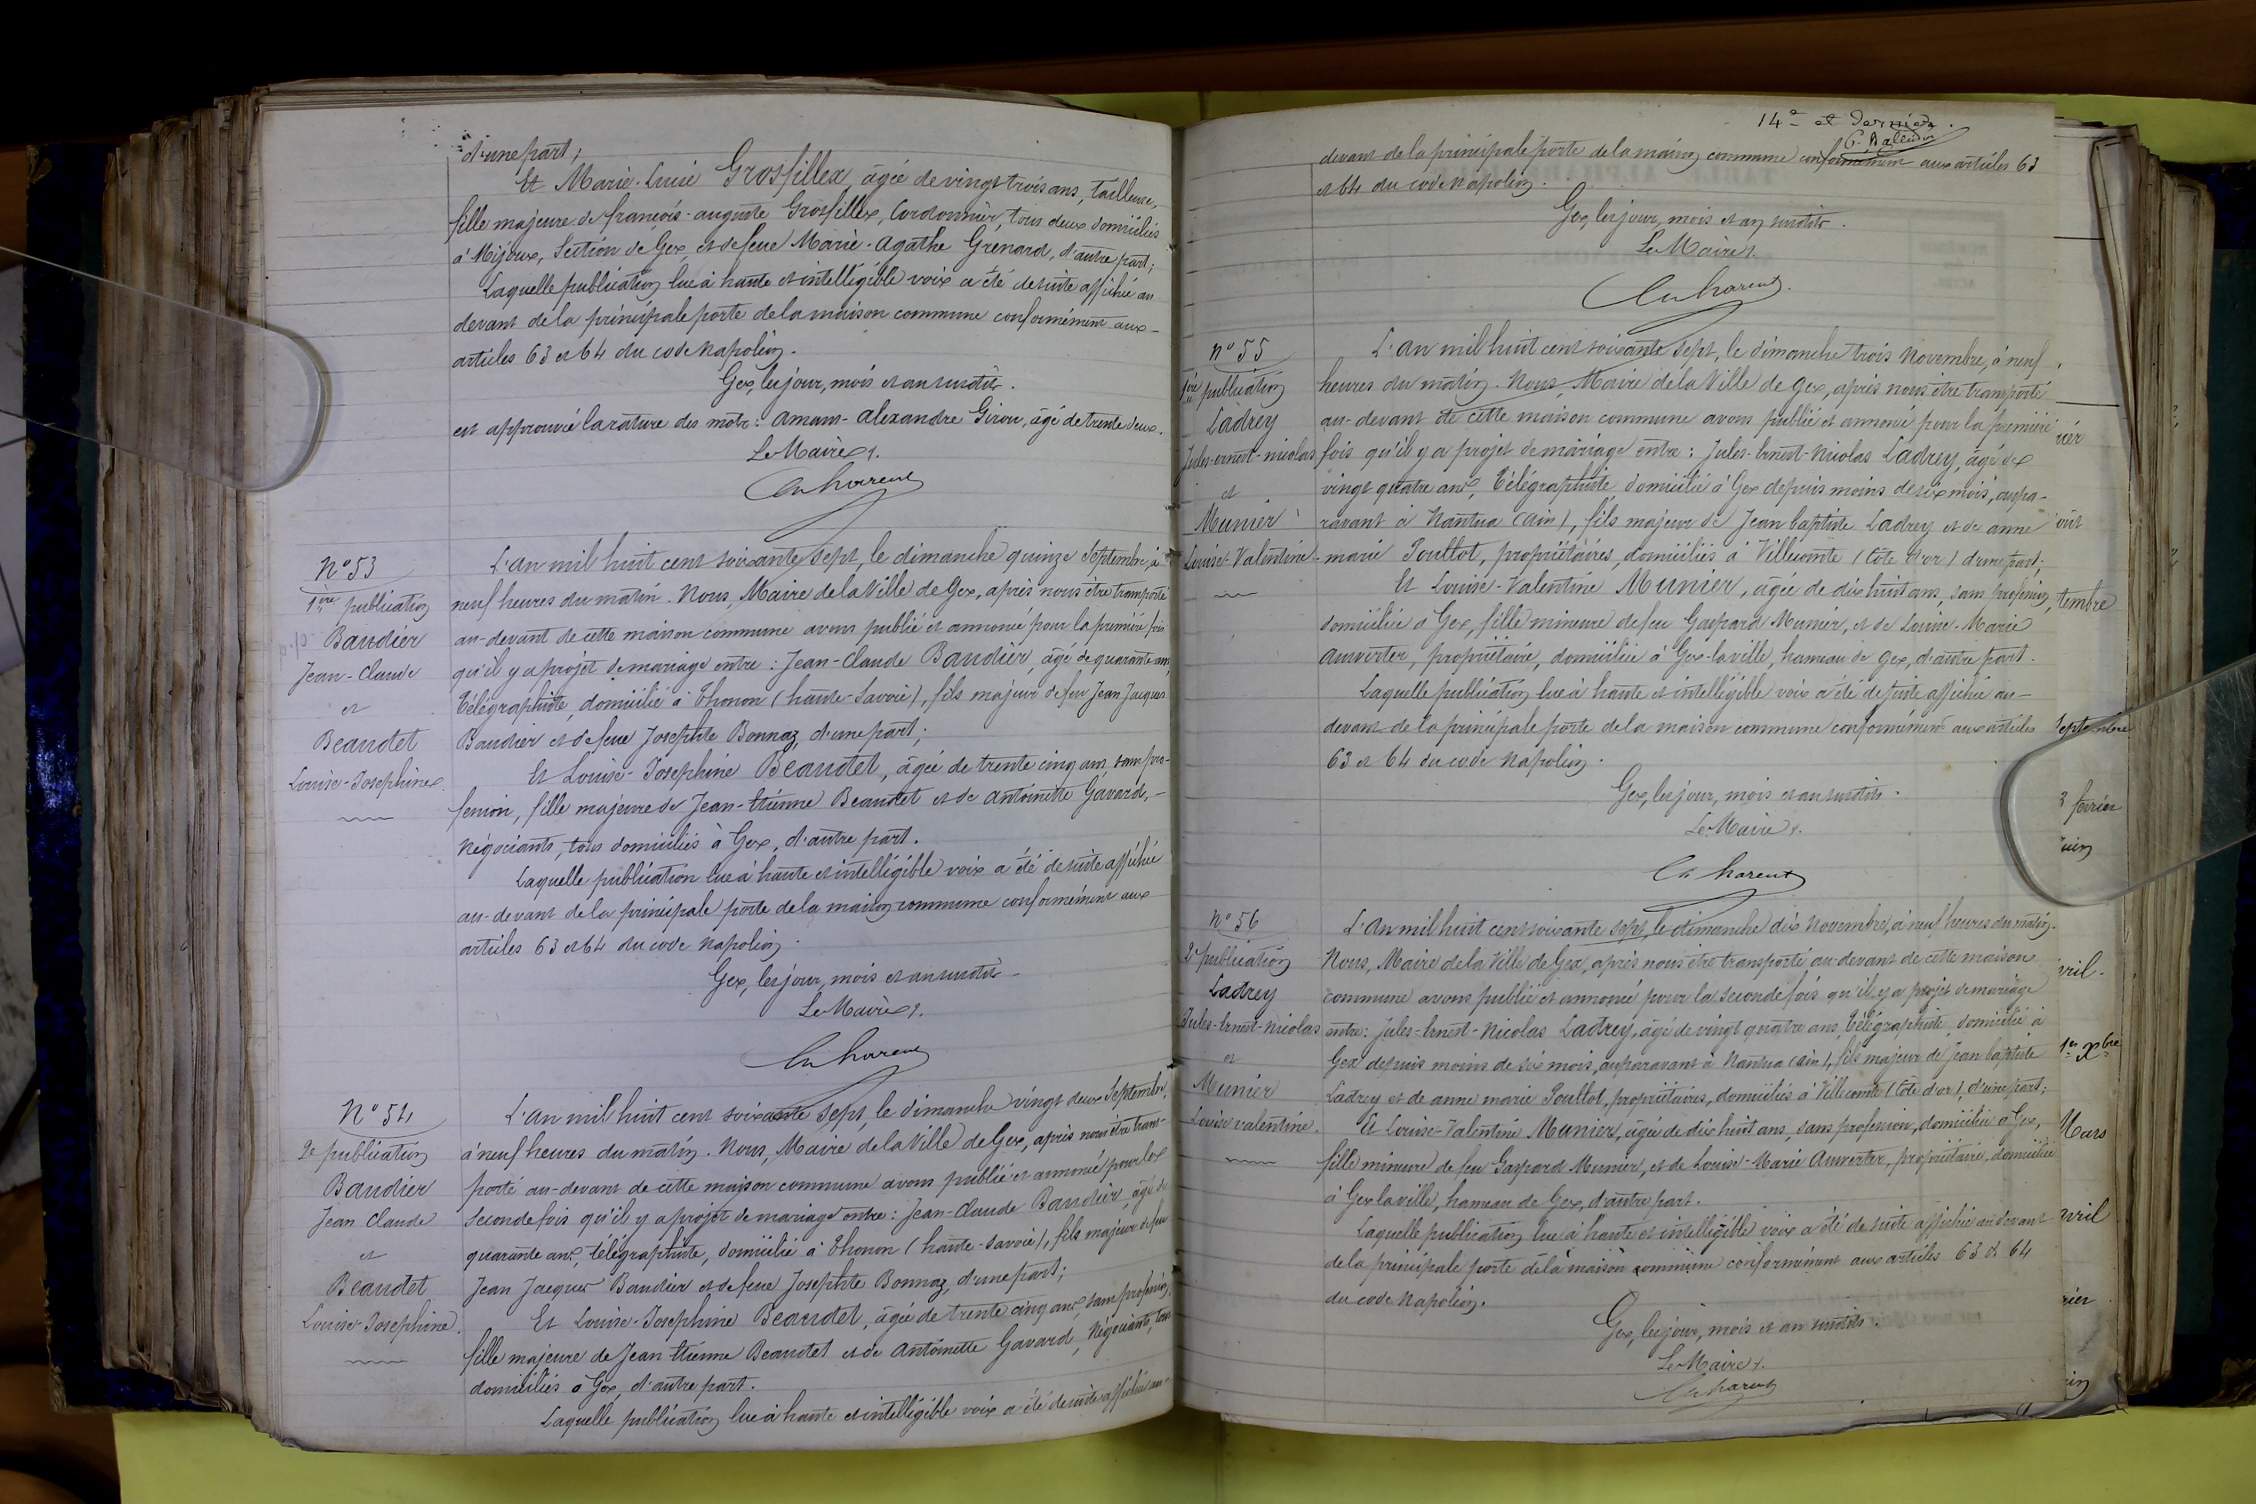 d'une part;
Et Marie-Lucie Grosfillex, âgée de vingt trois ans, tailleuse,
fille majeure de françois-auguste Grosfillex, Cordonnier, tous deux domiciliés
à Mijoux, Section de Gex, et de feue Marie-Agathe Grénard, d'autre part;
Laquelle publication lue à haute et intelligible voix a été de suite affichée au
devant de la principale porte de la maison commune conformément aux
articles 63 et 64 du code Napoléon.
Gex, les jour, mois et an susdits.
est approuvé la rature des mots: Amans-alexandre Girou, âgé de trente deux.
Le Maire.
N° 53
1ère publication
Baudier
Jean-Claude
et
Beaudet
Louise-Josephine
L'an mil huit cent soixante sept, le dimanche quinze Septembre, à
neuf heures du matin. Nous, Maire de la Ville de Gex, après nous être transporté
au-devant de cette maison commune avons publié et annoncé pour la première fois
qu'il y a projet de mariage entre: Jean-Claude Baudier, âgé de quarante ans,
Télégraphiste, domicilié à Thonon (haute-Savoie), fils majeur de feu Jean Jacques
Baudier et de feue Josephte Bonnaz, d'une part;
Et Louise-Josephine Beaudet, âgée de trente cinq ans, sans pro-
fession, fille majeure de Jean-Etienne Beaudet et de Antoinette Gavard,
Négociants, tous domiciliés à Gex, d'autre part.
Laquelle publication lue à haute et intelligible voix a été de suite affichée
au-devant de la principale porte de la maison commune conformément aux
articles 63 et 64 du code Napoléon.
Gex, les jour, mois et an susdits
Le Maire.
N° 54
2e publication
Baudier
Jean Claude
et
Beaudet
Louise-Josephine.
L'an mil huit cent soixante sept, le dimanche vingt deux Septembre,
à neuf heures du matin. Nous, Maire de la Ville de Gex, après nous être trans-
porté au-devant de cette maison commune avons publié et annoncé pour la
seconde fois qu'il y a projet de mariage entre: Jean-Claude Baudier, âgé de
quarante ans, télégraphiste, domicilié à Thonon (haute-Savoie), fils majeur de feu
Jean Jacques Baudier et de feue Josephte Bonnaz, d'une part;
Et Louise-Josephine Beaudet, âgée de trente cinq ans, sans profession,
fille majeure de Jean Etienne Beaudet et de Antoinette Gavard, Négociants, tous
domiciliés à Gex, d'autre part.
Laquelle publication lue à haute et intelligible voix a été de suite affichée au-
14e et dernier.
devant de la principale porte de la maison commune conformément aux articles 63
et 64 du code Napoléon.
Gex, les jour, mois et an susdits.
Le Maire.
N° 55
1ère publication
Ladrey
Jules-ernest-nicolas
et
Munier
Louise-Valentine
L'an mil huit cent soixante sept, le dimanche trois Novembre, à neuf
heures du matin. Nous, Maire de la Ville de Gex, après nous être transporté
au-devant de cette maison commune avons publié et annoncé pour la première
fois qu'il y a projet de mariage entre: Jules-Ernest-Nicolas Ladrey, âgé de
vingt quatre ans, Télégraphiste, domicilié à Gex depuis moins de six mois, aupa-
ravant à Nantua (Ain), fils majeur de Jean baptiste Ladrey et de anne
marie Poullot, propriétaires, domiciliés à Villecomte (Côte d'or) d'une part;
Et Louise-Valentine Munier, âgée de dix huit ans, sans profession,
domiciliée à Gex, fille mineure de feu Gaspard Munier, et de Louise-Marie
Anverter, propriétaire, domiciliée à Gex-la-ville, hameau de Gex, d'autre part.
Laquelle publication lue à haute et intelligible voix a été de suite affichée au-
devant de la principale porte de la maison commune conformément aux articles
63 et 64 du code Napoléon.
Gex, les jour, mois et an susdits.
Le Maire.
N° 56
2e publication
Ladrey
Jules-Ernest-nicolas
et
Munier
Louise valentine.
L'an mil huit cent soixante sept, le dimanche dix Novembre, à neuf heures du matin.
Nous, Maire de la Ville de Gex, après nous être transporté au-devant de cette maison
commune avons publié et annoncé pour la seconde fois qu'il y a projet de mariage
entre: Jules-Ernest-Nicolas Ladrey, âgé de vingt quatre ans, Télégraphiste, domicilié à
Gex depuis moins de six mois, auparavant à Nantua (Ain), fils majeur de Jean baptiste
Ladrey et de anne marie Poullot, propriétaires, domiciliés à Villecomte (Côte d'or), d'une part;
Et Louise-Valentine Munier, âgée de dix huit ans, sans profession, domiciliée à Gex,
fille mineure de feu Gaspard Munier, et de Louise-Marie Anverter, propriétaire, domiciliée
à Gex la ville, hameau de Gex, d'autre part.
Laquelle publication lue à haute et intelligible voix a été de suite affichée au devant
de la principale porte de la maison commune conformément aux articles 63 et 64
du code Napoléon.
Gex, les jour, mois et an susdits.
Le Maire.
tembre
septembre
3 février
vril.
1er Xbre
Mars
avril